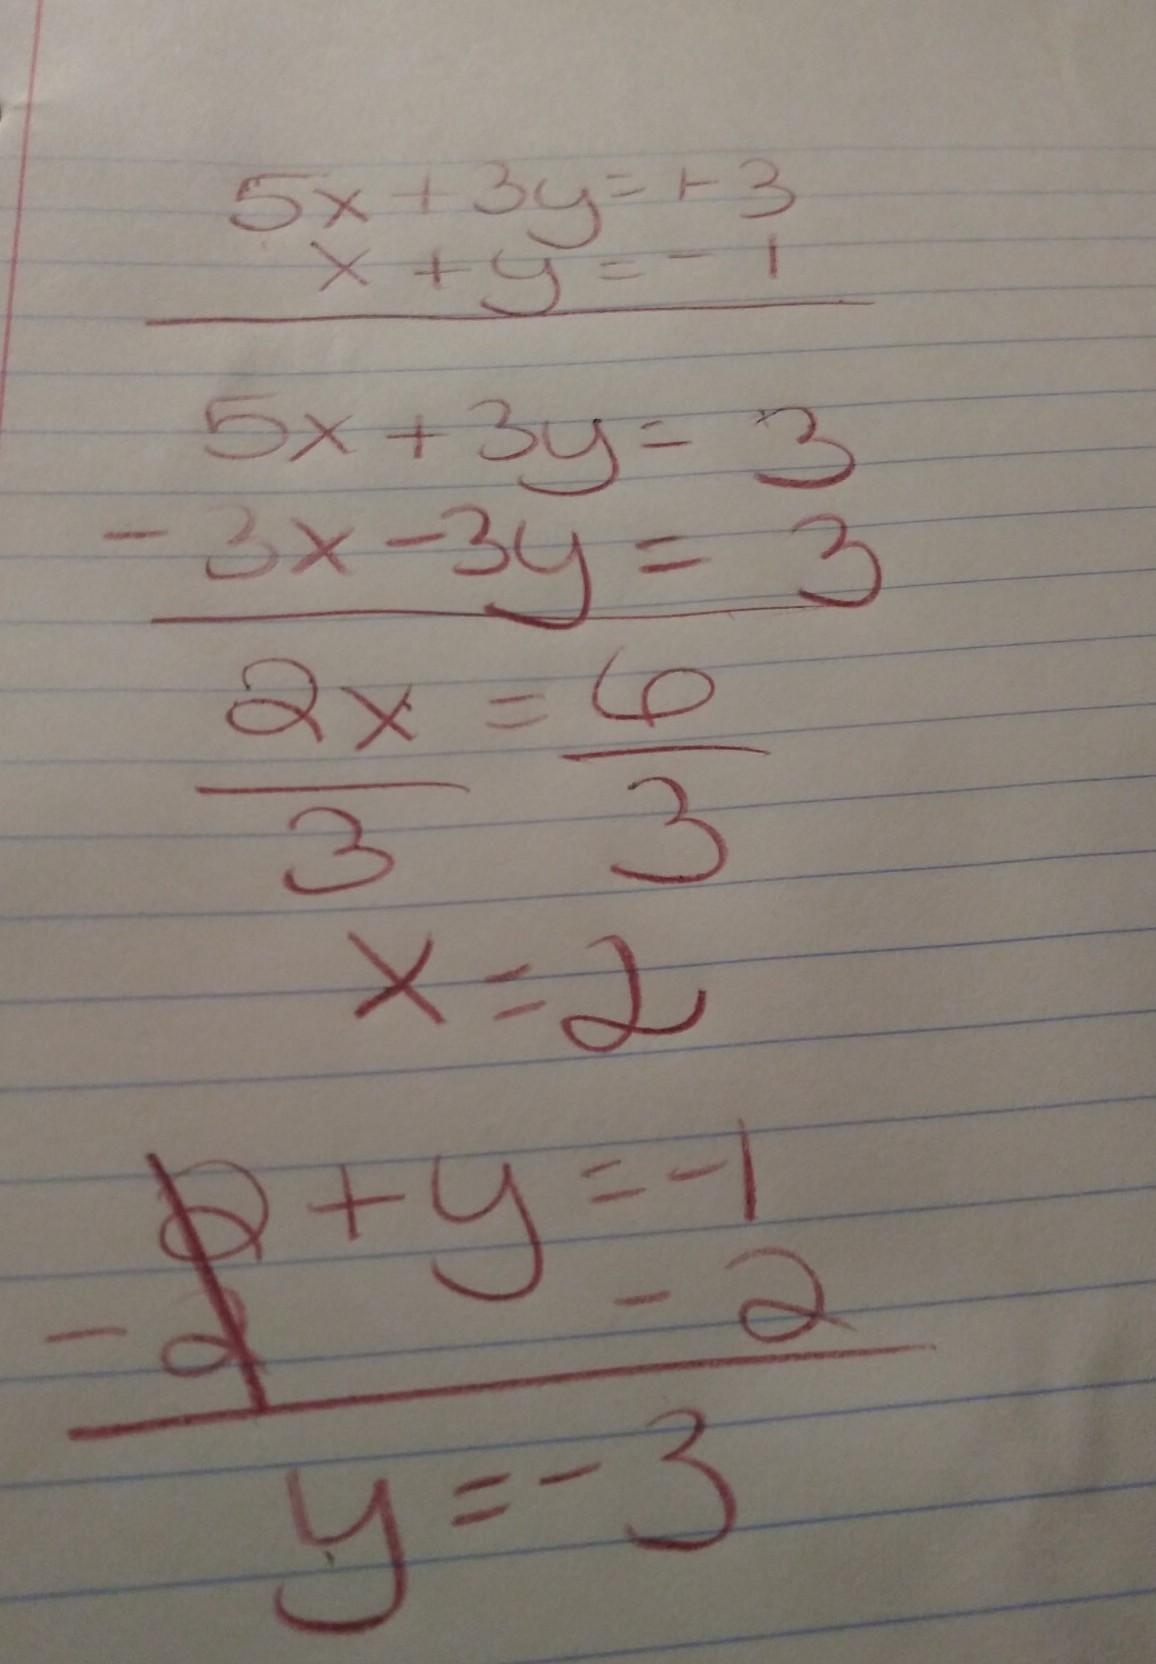 5x + 3y = +3
x + y = - 1
5x + 3y = 3
- 3x - 3y = 3
2x = 6
3 3
x = 2
2 + y = -1
- 2 - 2
y = - 3